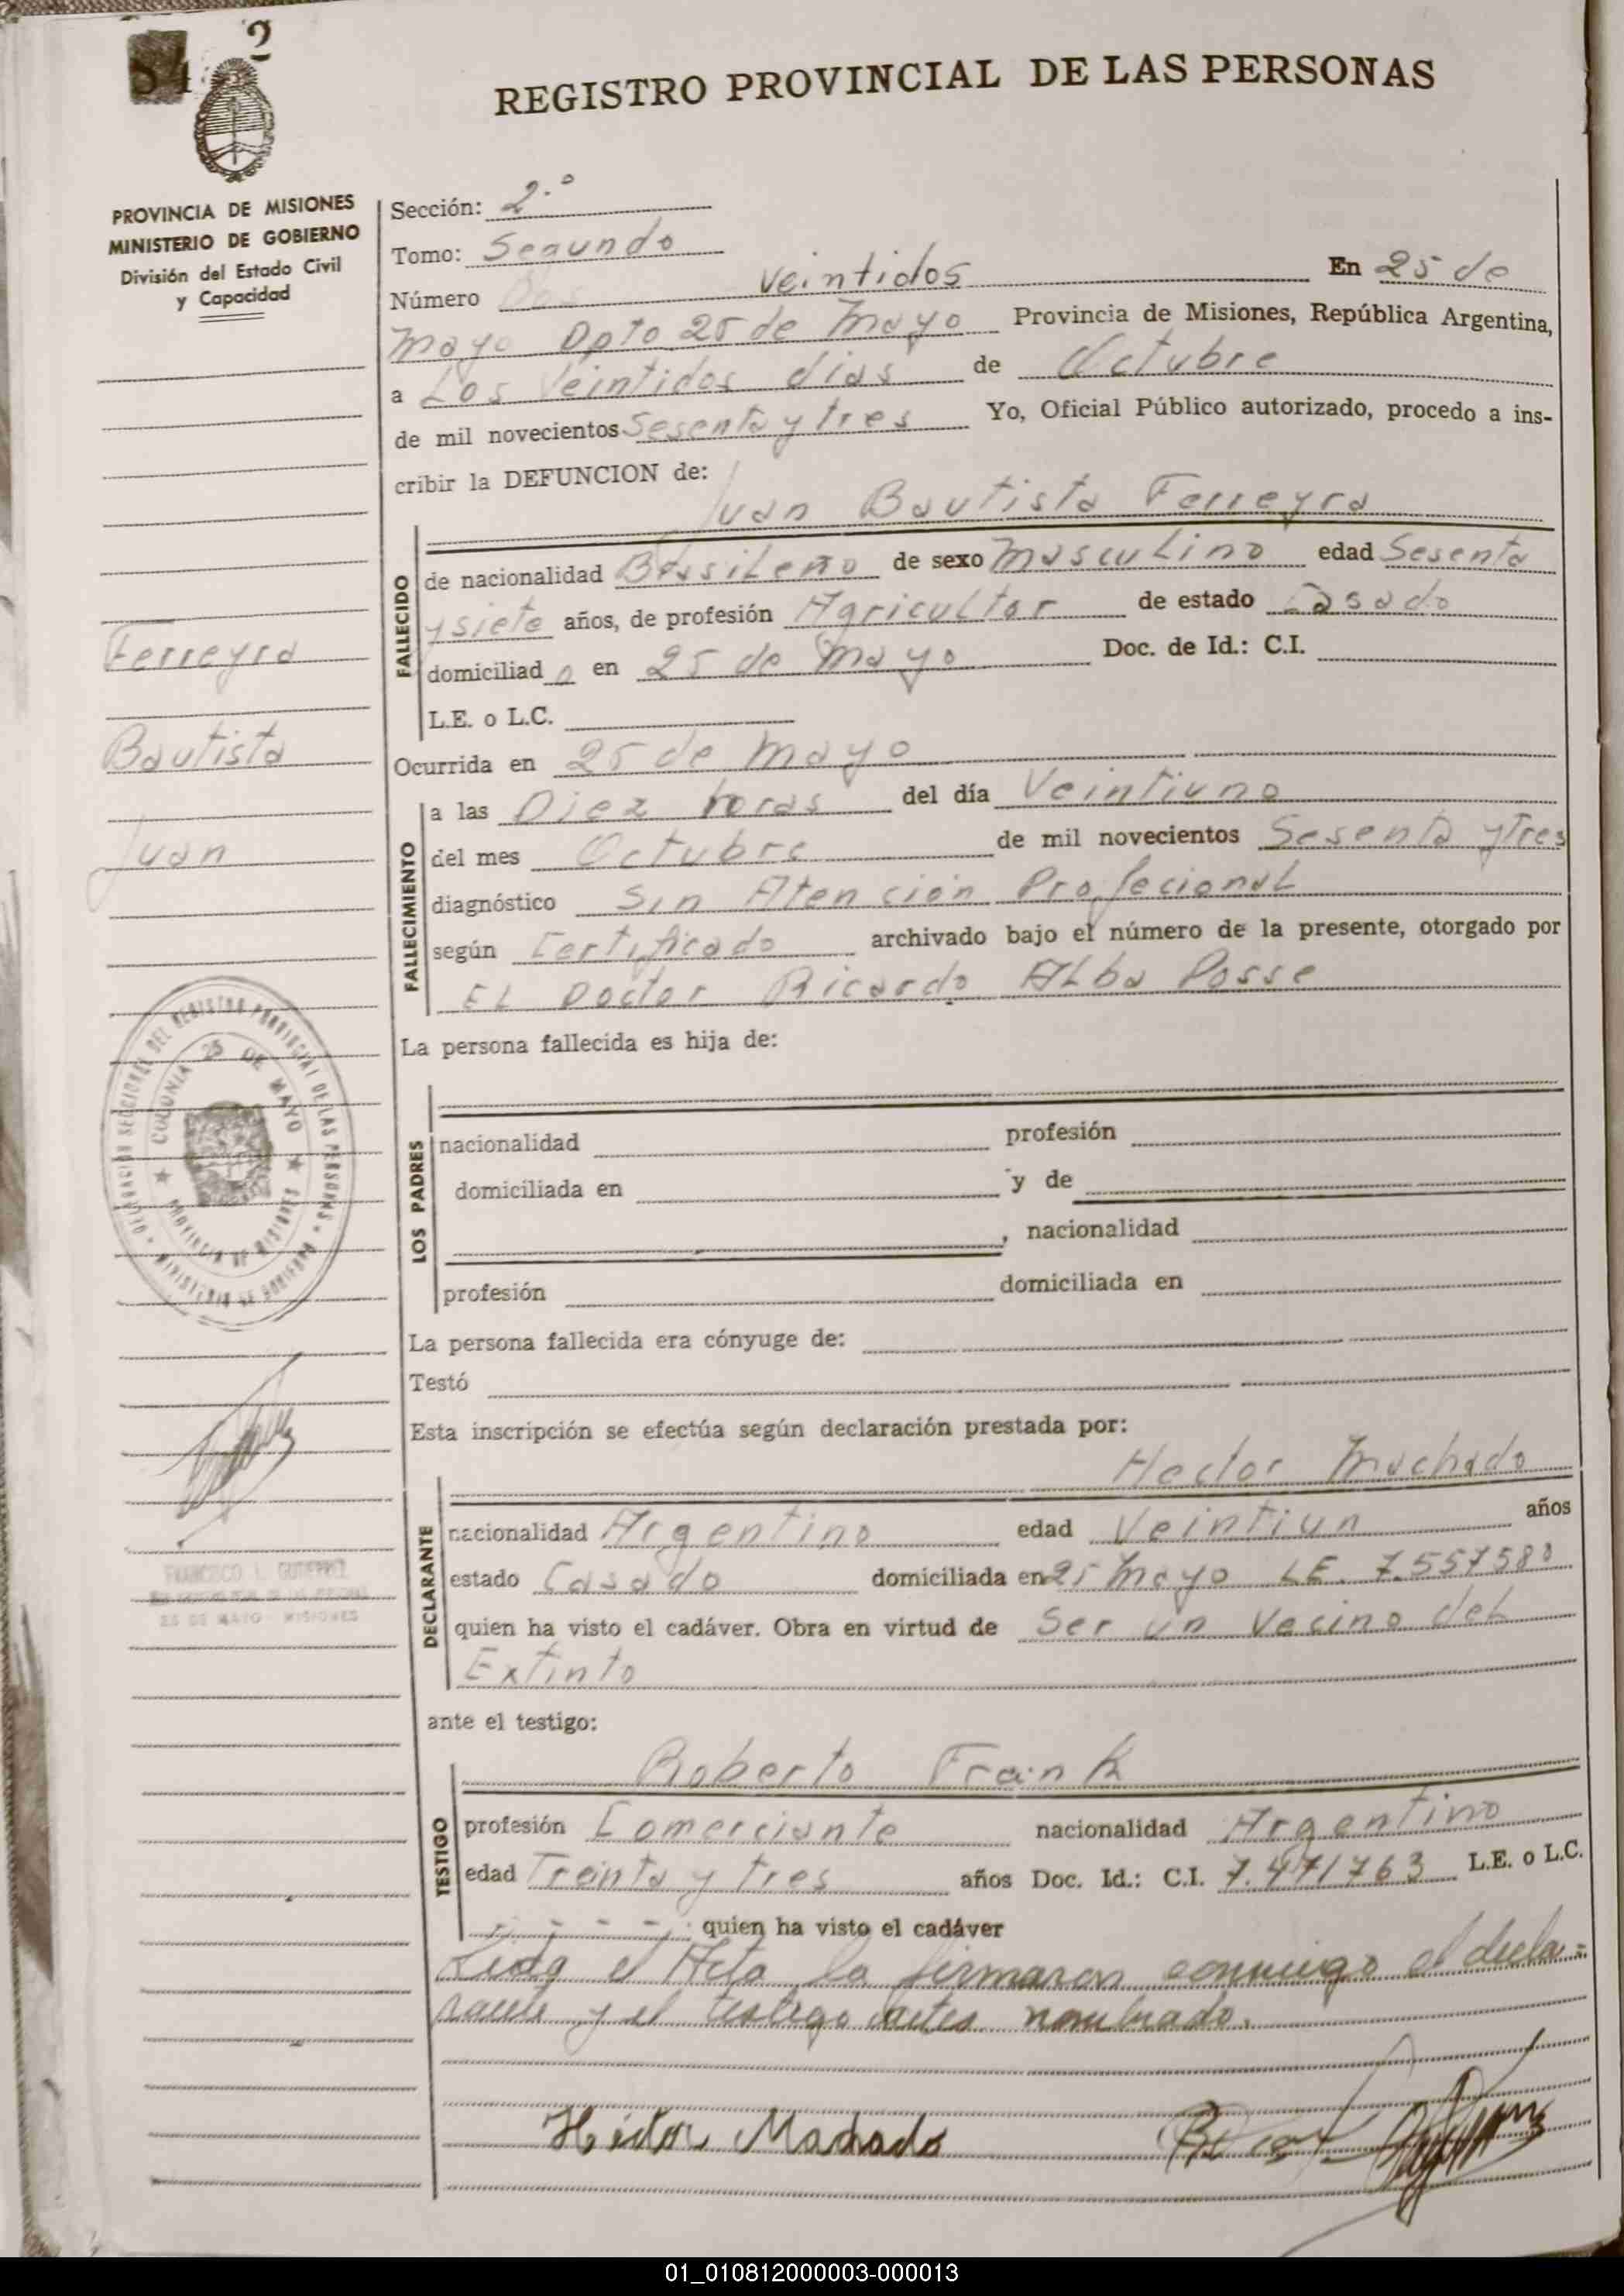 2
84
REGISTRO PROVINCIAL DE LAS PERSONAS
PROVINCIA DE MISIONES
MINISTERIO DE GOBIERNO
División del Estado Civil
y Capacidad
Sección: 2.º
Tomo: Segundo
Número Dos veintidos En 25 de
Mayo Dpto 25 de Mayo Provincia de Misiones, República Argentina,
a Los Veintidos dias de Octubre
de mil novecientos Sesenta y tres Yo, Oficial Público autorizado, procedo a ins-
cribir la DEFUNCION de:
Juan Bautista Ferreyra
FALLECIDO
de nacionalidad Brasileño de sexo Masculino edad Sesenta
y siete años, de profesión Agricultor de estado Casado
domiciliad o en 25 de Mayo Doc. de Id.: C.I.
L.E. o L.C.
Ferreyra
Bautista
Juan
Ocurrida en 25 de Mayo
FALLECIMIENTO
a las Diez horas del día Veintiuno
del mes Octubre de mil novecientos Sesenta y Tres
diagnóstico Sin Atención Profecional
según Certificado archivado bajo el número de la presente, otorgado por
EL Doctor Ricardo Alba Posse
La persona fallecida es hija de:
LOS PADRES
nacionalidad profesión
domiciliada en y de
, nacionalidad
profesión domiciliada en
DELEGACION SECCIONAL DEL REGISTRO PROVINCIAL DE LAS PERSONAS
MINISTERIO DE GOBIERNO
COLONIA 25 DE MAYO
PROVINCIA DE MISIONES
La persona fallecida era cónyuge de:
Testó
Esta inscripción se efectúa según declaración prestada por:
Hector Machado
DECLARANTE
nacionalidad Argentino edad Veintiun años
estado Casado domiciliada en 25 Mayo LE. 7.557580
quien ha visto el cadáver. Obra en virtud de Ser un Vecino del
Extinto
FRANCISCO L. GUTIERREZ
25 DE MAYO - MISIONES
ante el testigo:
Roberto Frank
TESTIGO
profesión Comerciante nacionalidad Argentino
edad Treinta y tres años Doc. Id.: C.I. 7.471763 L.E. o L.C.
quien ha visto el cadáver
Leida el Acta la firmaron conmigo el decla-
rante y el testigo antes nombrado.
Héctor Machado
01_010812000003-000013